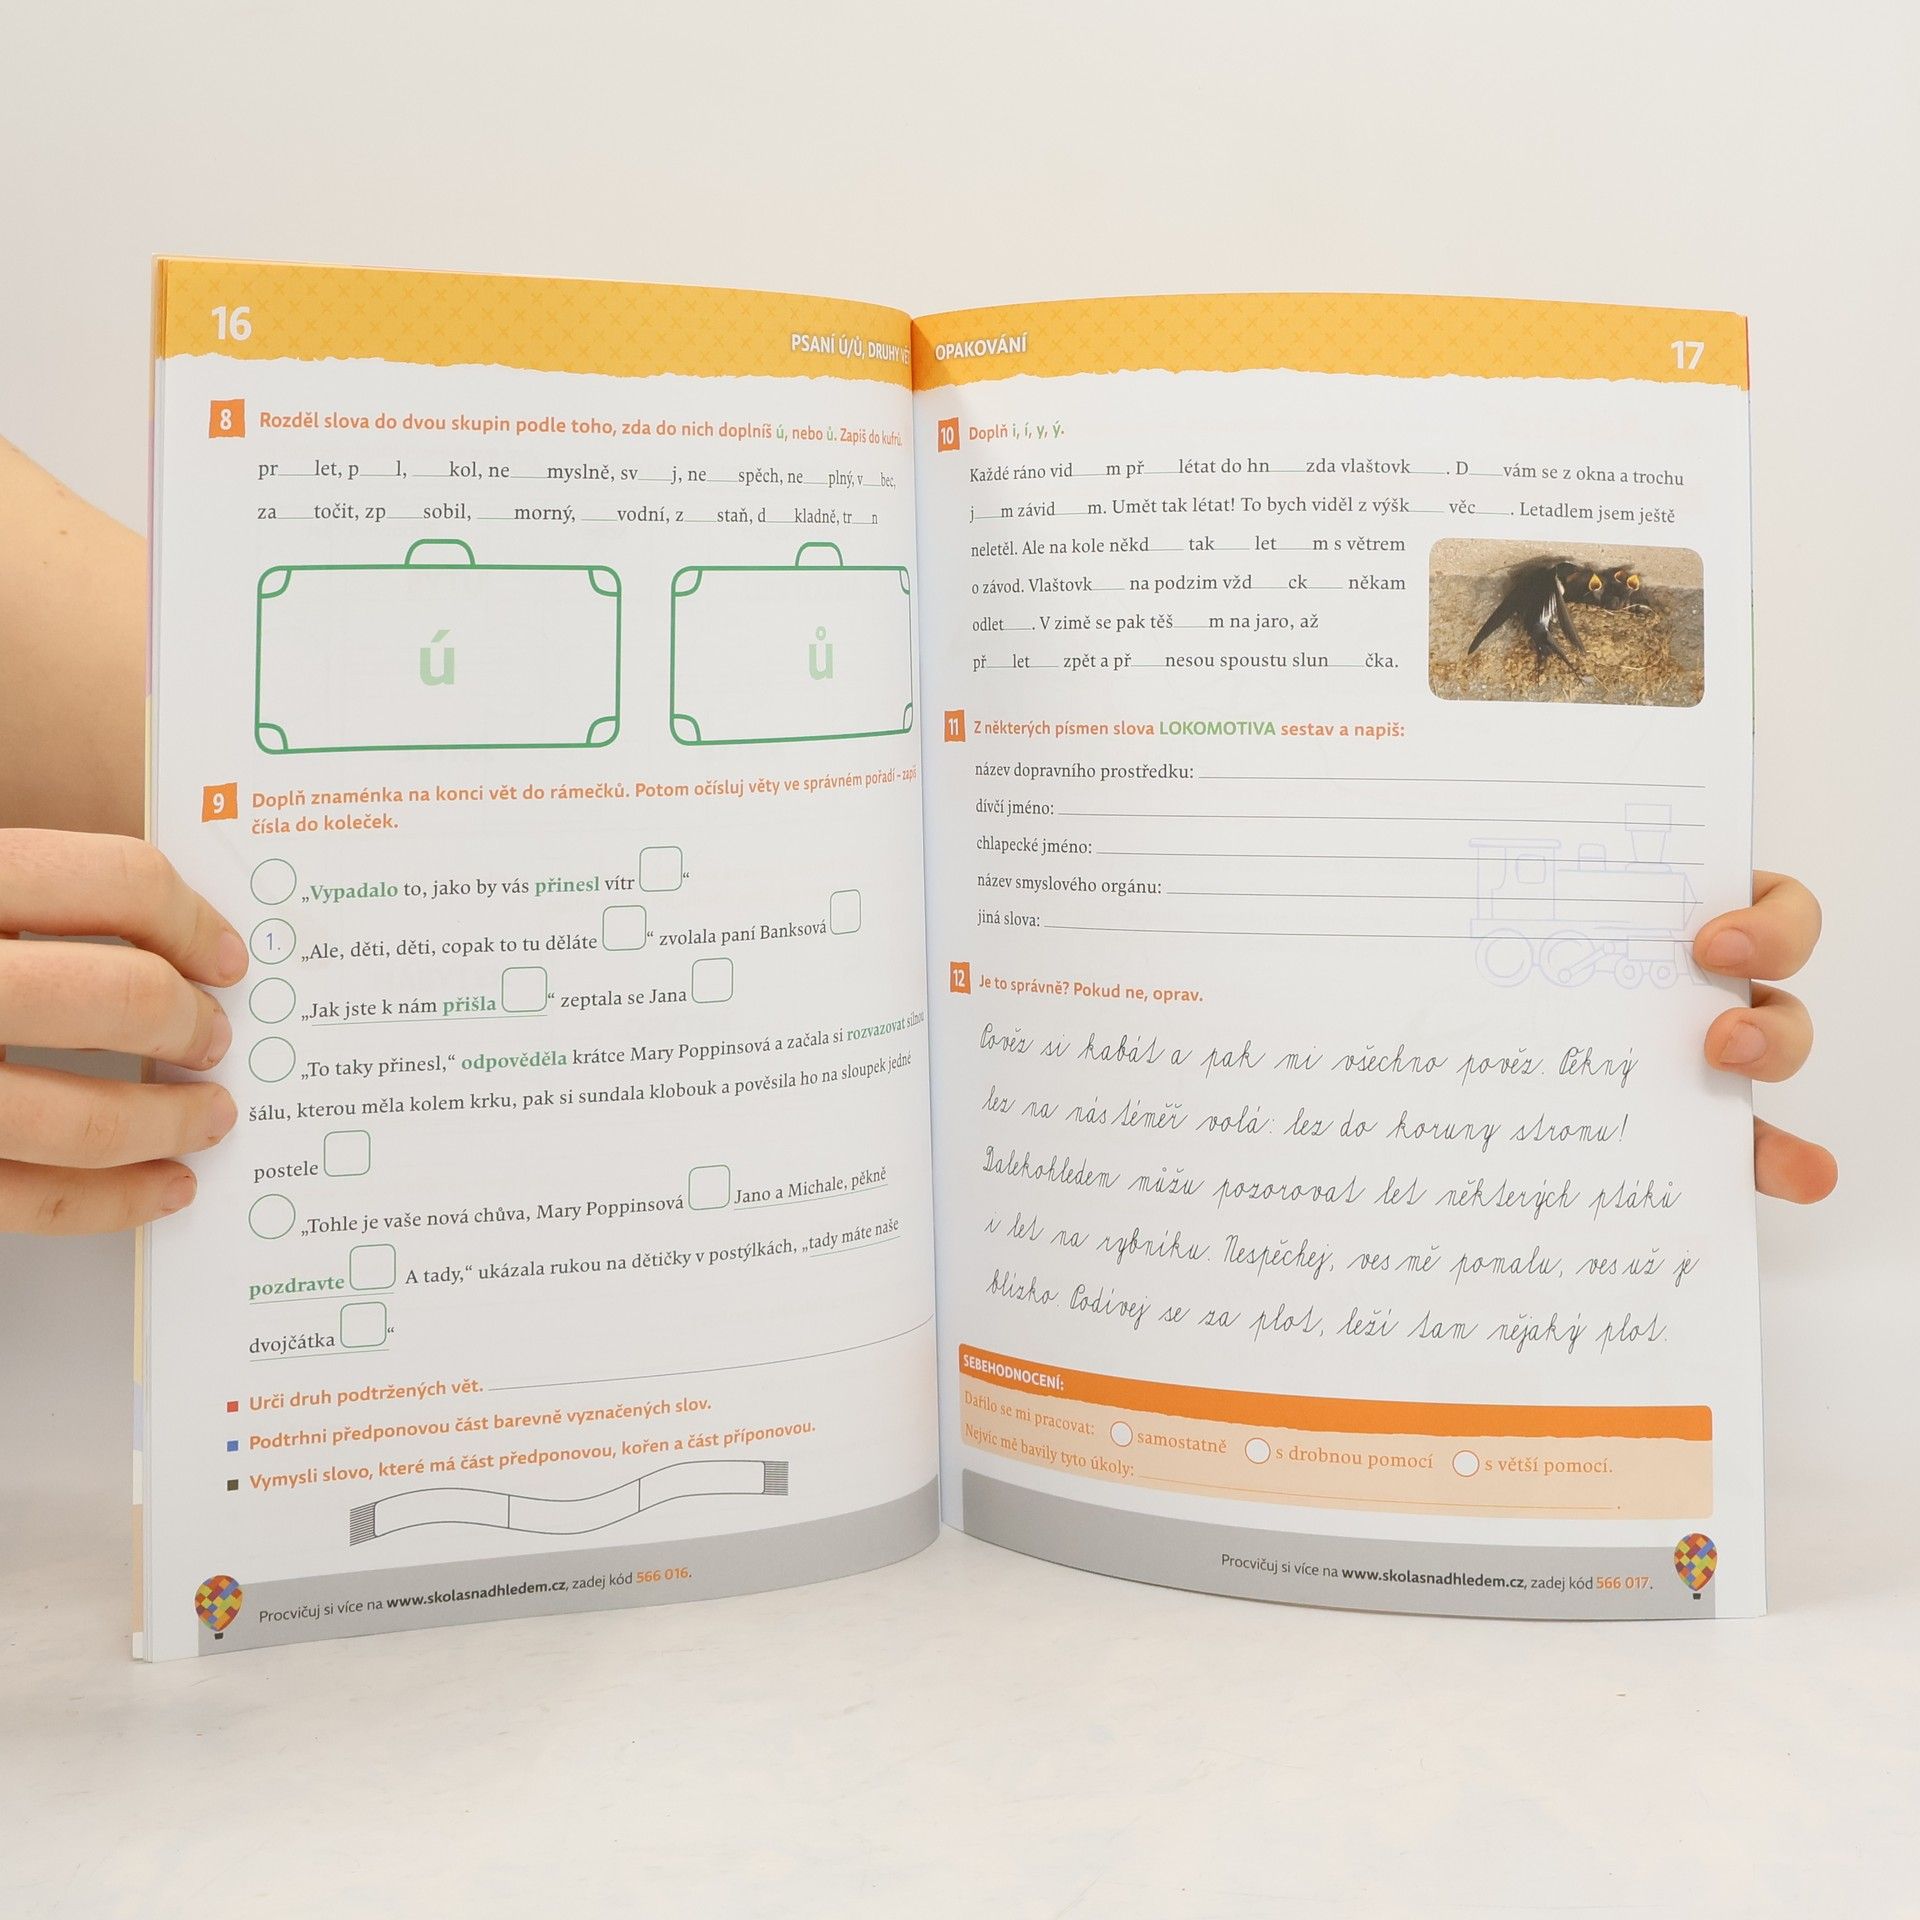 16
PSANÍ Ú/Ů, DRUHY VĚT
8 Rozděl slova do dvou skupin podle toho, zda do nich doplníš ú, nebo ů. Zapiš do kufrů.
pr___let, p___l, ___kol, ne___myslně, sv___j, ne___spěch, ne___plný, v___bec,
za___točit, zp___sobil, ___morný, ___vodní, z___staň, d___kladně, tr___n
ú
ů
9 Doplň znaménka na konci vět do rámečků. Potom očísluj věty ve správném pořadí – zapiš
čísla do koleček.
„Vypadalo to, jako by vás přinesl vítr “
1. „Ale, děti, děti, copak to tu děláte “ zvolala paní Banksová
„Jak jste k nám přišla “ zeptala se Jana
„To taky přinesl,“ odpověděla krátce Mary Poppinsová a začala si rozvazovat silnou
šálu, kterou měla kolem krku, pak si sundala klobouk a pověsila ho na sloupek jedné
postele
„Tohle je vaše nová chůva, Mary Poppinsová Jano a Michale, pěkně
pozdravte A tady,“ ukázala rukou na dětičky v postýlkách, „tady máte naše
dvojčátka “
Urči druh podtržených vět.
Podtrhni předponovou část barevně vyznačených slov.
Vymysli slovo, které má část předponovou, kořen a část příponovou.
Procvičuj si více na www.skolasnadhledem.cz, zadej kód 566 016.
OPAKOVÁNÍ
17
10 Doplň i, í, y, ý.
Každé ráno vid___m př___létat do hn___zda vlaštovk___. D___vám se z okna a trochu
j___m závid___m. Umět tak létat! To bych viděl z výšk___ věc___. Letadlem jsem ještě
neletěl. Ale na kole někd___ tak___ let___m s větrem
o závod. Vlaštovk___ na podzim vžd___ck___ někam
odlet___. V zimě se pak těš___m na jaro, až
př___let___ zpět a př___nesou spoustu slun___čka.
11 Z některých písmen slova LOKOMOTIVA sestav a napiš:
název dopravního prostředku:
dívčí jméno:
chlapecké jméno:
název smyslového orgánu:
jiná slova:
12 Je to správně? Pokud ne, oprav.
Pověz si kabát a pak mi všechno pověz. Pěkný
lez na nás téměř volá: lez do koruny stromu!
Dalekohledem můžu pozorovat let některých ptáků
i let na rybníku. Nespěchej, ves mě pomalu, ves už je
blízko. Podívej se za plot, leží tam nějaký plot.
SEBEHODNOCENÍ:
Dařilo se mi pracovat: samostatně s drobnou pomocí s větší pomocí.
Nejvíc mě bavily tyto úkoly: .
Procvičuj si více na www.skolasnadhledem.cz, zadej kód 566 017.